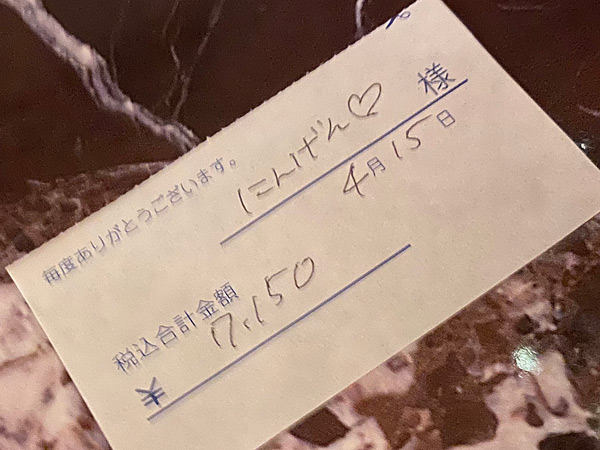 毎度ありがとうございます。
にんげん♡ 様
4月15日
税込合計金額
¥ 7,150